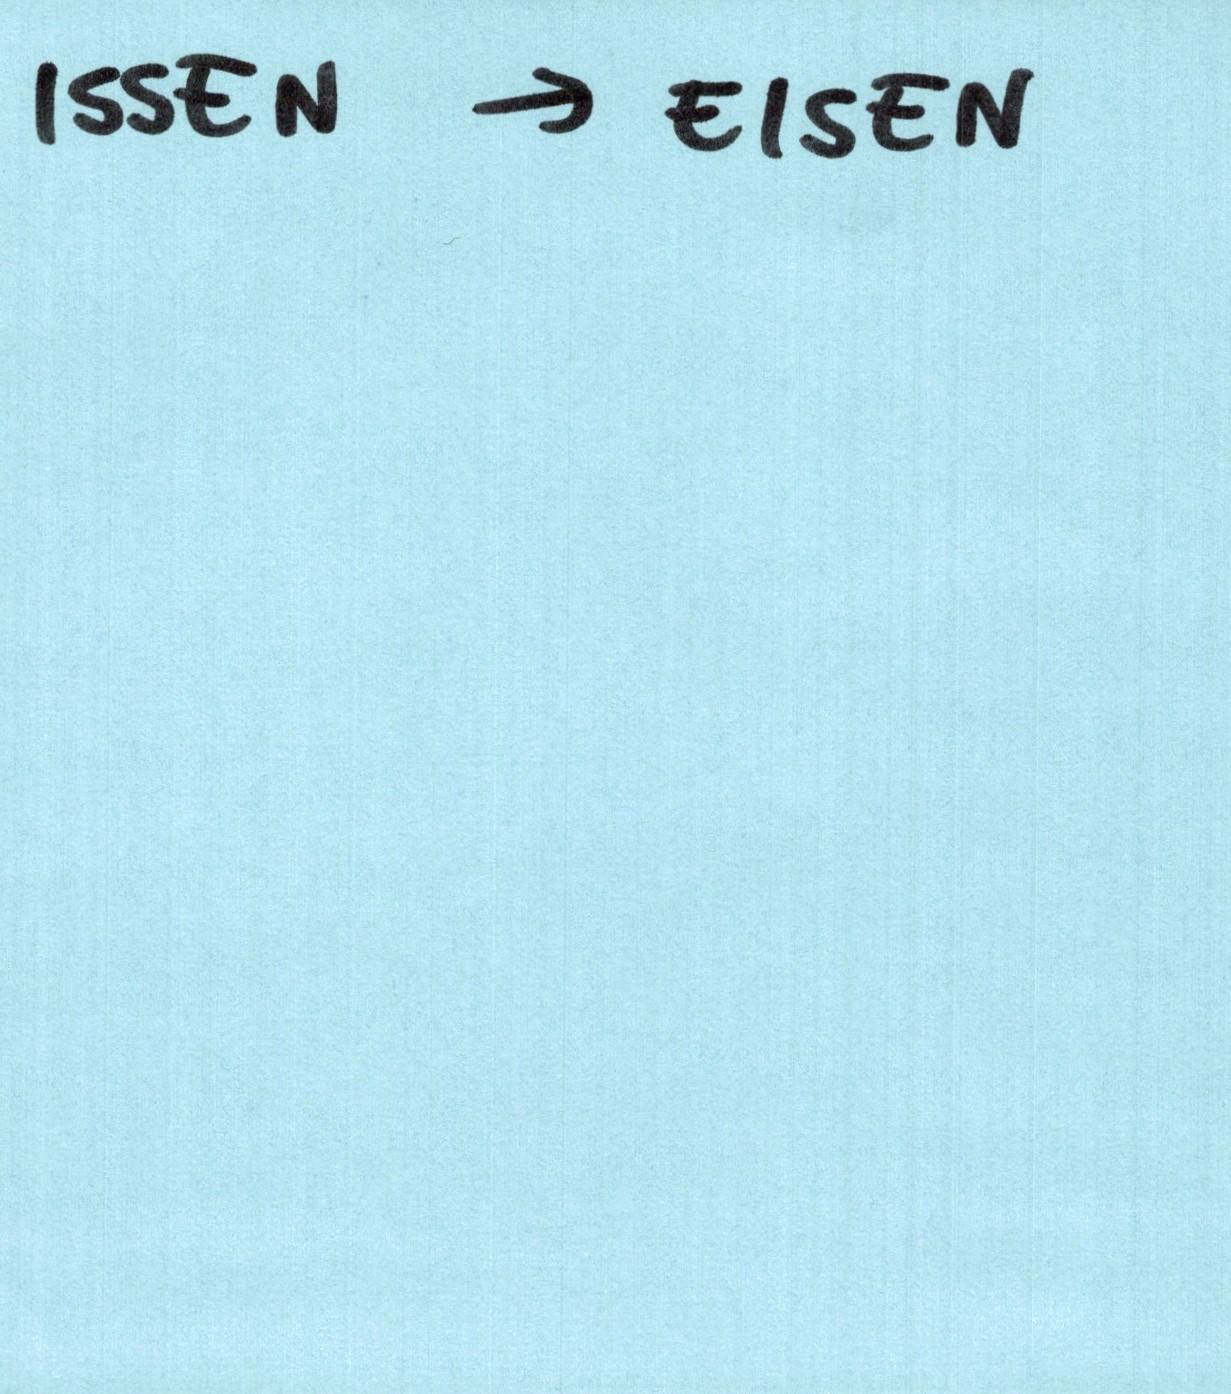 ISSEN → EISEN